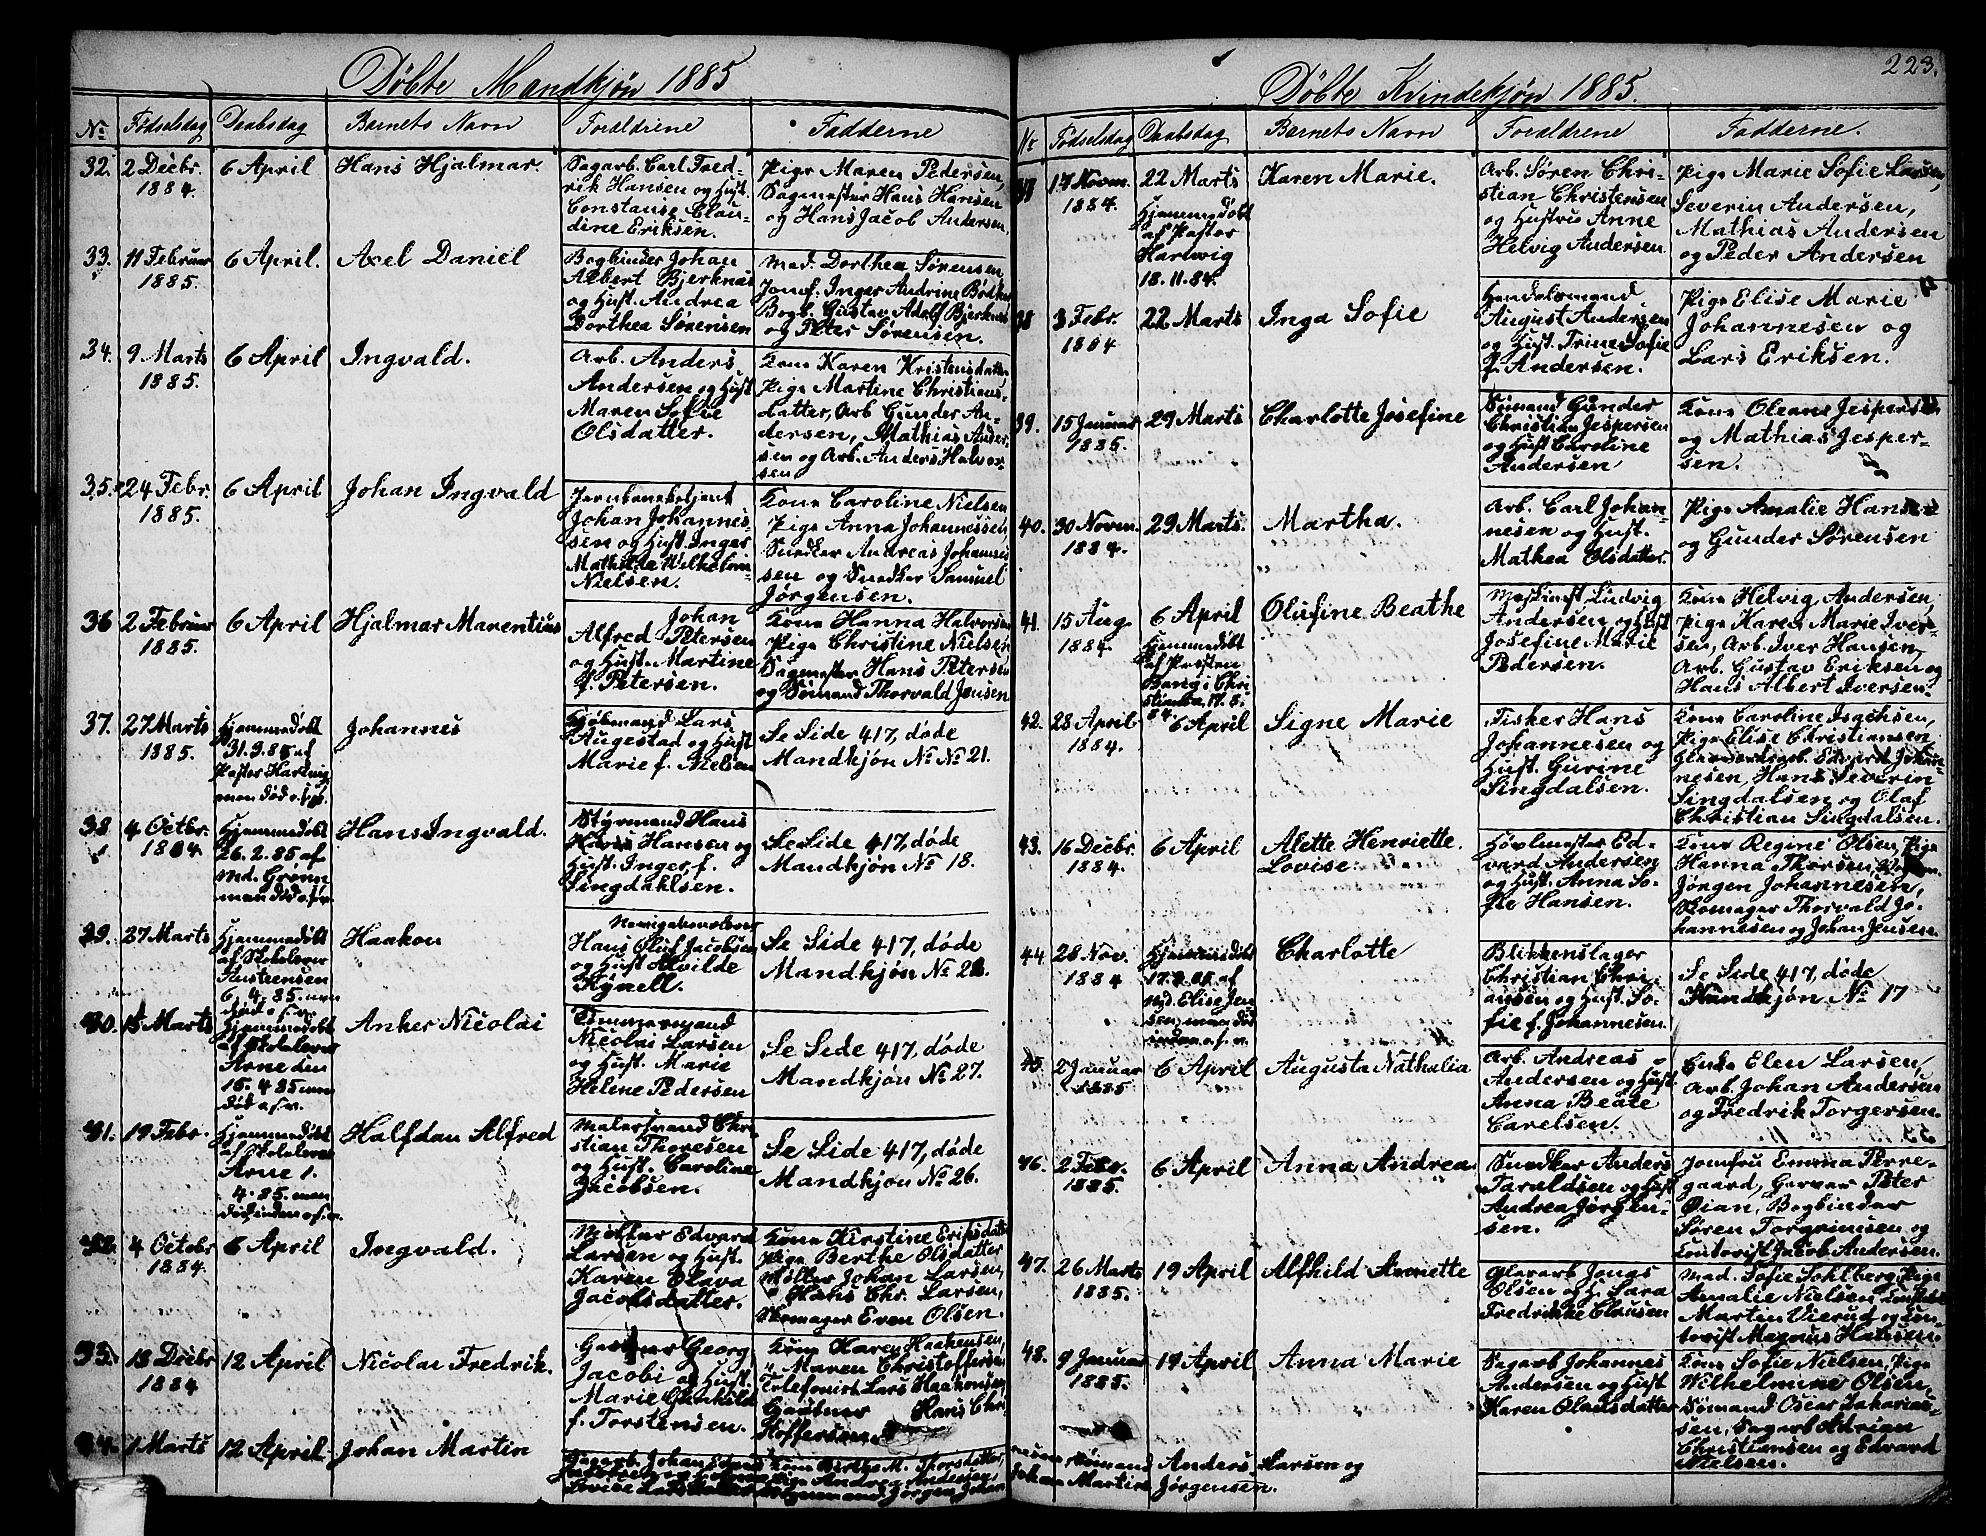 Døbte Mandkjøn 1885
No Fødselsdag Daabsdag Barnets Navn Forældrene Fadderne
32. 2 Decbr. 1884. 6 April Hans Hjalmar.
Sagarb. Carl Fred-
rik Hansen og Hust.
Constanse Clau-
dine Eriksen.
Pige Maren Pedersen,
Sagmester Hans Hansen
og Hans Jacob Andersen.
33. 11 Februar 1885. 6 April. Axel Daniel
Bogbinder Johan
Albert Bjerknæs
og Hust. Andrea
Dorthea Sørensen
Mad. Dorthea Sørensen,
Jomf. Inger Andrine Bødker
Bogb. Gustav Adolf Bjerknæs
og Peter Sørensen.
34. 9 Marts 1885. 6 April Ingvald.
Arb. Anders
Andersen og Hust
Maren Sofie
Olsdatter.
Kone Karen Kristensdatter
Pige Martine Christians-
datter, Arb Gunder An-
dersen, Mathias Ander-
sen og Arb. Anders Halvor-
sen
35. 24 Febr. 1885. 6 April Johan Ingvald
Jernbanebetjent
Johan Johannes-
sen og Hust. Inger
Mathilde Vilhelmine
Nielsen.
Kone Caroline Nielsen
Pige Anna Johannessen,
Snedker Andreas Johannes
sen og Snedker Samuel
Jørgensen.
36 2 Februar 1885. 6 April Hjalmar Marentius
Johan
Alfred Petersen
og Hust. Martine
f. Petersen.
Kone Hanna Halvorsen
Pige Christine Nielsen
Sagmester Hans Petersen
og Sømand Thorvald Jensen
37. 27 Marts 1885. Hjemmedøbt
31.3.85 af
Pastor Hartvig
men død
Johannes
Kjøbmand Lars
Augestad og Hust
Marie f. Nielsen
Se Side 417, døde
Mandkjøn No No 21.
38 4 Octbr. 1884. Hjemmedøbt
26.2.85 af
Md. Grønn
men død
Hans Ingvald.
Styrmand Hans
Hansen og
Hust. Inger f.
Singdahlsen.
Se Side 417, døde
Mandkjøn No 18.
39. 27 Marts Hjemmedøbt
af Skolelærer
6. 4. 85. men
død
Haakon
Hans Oluf Jacobsen
og Hust. Alvilde
Kynell.
Se Side 417, døde
Mandkjøn No
40. 15 Marts Hjemmedøbt
af Skolelærer
Arne den
15. 4. 85 men
død
Anker Nicolai
Tømmermand
Nicolai Larsen
og Hust. Marie
Helene Pedersen
Se Side 417, døde
Mandkjøn No 27.
41. 19 Febr. Hjemmedøbt
af Skolelærer
Arne 1.
4. 85. men
død inden
Halfdan Alfred
Malersvend Chri
stian Thoresen
og Hust. Caroline
Jacobsen.
Se Side 417, døde
Mandkjøn No 26.
42. 4 Octobr 1884. 6 April Ingvald.
Møller Edvard
Larsen og Hust.
Karen Olava
Jacobsdatter.
Kone Kirstine Eriksdatter
Pige Berthe Olsdatter
Møller Johan Larsen,
Hans Chr. Larsen,
Skomager Even Olsen.
13 Decbr 1884 12 April Nicolai Fredrik.
Georg
Jacobi og Hust.
Marie Gunhild
f. Torstensen.
Kone Karen Haakensen,
Maren Christoffersen
Telefonist Lars Haakonsen
Gartner Hans Chri
stoffersen
1 Marts 12 April Johan Martin
Sagarb. Johan
Kone Berthe M. Thorsdatter,
Pige Andrea Andersen
Jørgen Johan

223.
Døbte Kvindekjøn 1885.
Nr Fødselsdag Daabsdag Barnets Navn Forældrene Fadderne.
17 Novm. 1884. 22 Marts
Hjemmedøbt
af Pastor
Hartvig
18. 11. 84.
Karen Marie.
Arb. Søren Chri-
stian Christensen
og Hustru Anne
Helvig Andersen
Pige Marie Sofie Larsen,
Severin Andersen,
Mathias Andersen
og Peder Andersen
38 3 Febr. 1884 22 Marts Inga Sofie
Handelsmand
August Andersen
og Hust. Trine Sofie
f. Andersen.
Pige Elise Marie
Johannesen og
Lars Eriksen.
39. 15 Januar 1885. 29 Marts Charlotte Josefine
Sømand Gunder
Christian Jespersen
og Hust Caroline
Andersen
Kone Oleane Jespersen
og Mathias Jesper-
sen.
40. 30 Novm. 1884. 29 Marts. Martha.
Arb. Carl Johan-
nesen og Hust.
Mathea Olsdatter.
Pige Amalie Hansen
og Gunder Sørensen
41. 15 Aug 1884. 6 April
Hjemmedøbt
af Presten
Bang i Chri
stiania 17. 8.
84.
Olufine Beathe
Maskinist Ludvig
Andersen og Hust
Josefine Marie
Pedersen.
Kone Helvig Andersen,
Pige Karen Marie Iver-
sen, Arb. Iver Hansen,
Arb. Gustav Eriksen og
Hans Albert Iversen.
42. 28 April 1884. 6 April Signe Marie
Fisker Hans
Johannesen og
Hust. Gurine
Singdalsen.
Kone Caroline Isachsen,
Pige Elise Christiansen
Glasværksarb. Edvard Johan-
nesen, Hans Severin
Singdalsen og Olaf
Christian Singdalsen.
43. 16 Decbr. 1884. 6 April Alette Henriette
Lovise.
Høvlmester Ed-
vard Andersen
og Hust. Anna So-
fie Hansen.
Kone Regine Olsen, Pige
Hanna Thorsen,
Jørgen Johannesen,
Skomager Thorvald Jo-
hannesen og Johan Jensen.
44. 28 Nov. 1884 Hjemmedøbt
af
Md. Elise Jen
sen, men død
inden
Charlotte
Blikkenslager
Christian Chri-
ansen og Hust. So-
fie f. Johannesen.
Se Side 417, døde
Kvindkjøn No 17
45. 2 Januar 1885 6 April Augusta Nathalia
Arb. Andreas
Andersen og Hust
Anna Beate
Carelsen.
Enke Elen Larsen,
Arb. Johan Andersen
og Fredrik Torgersen.
46. 2 Febr. 1885. 6 April Anna Andrea
Snedker Anders
Taraldsen og Hust
Andrea Jørgen-
sen.
Jomfru Emma Perre-
gaard, Garver Peter
Øian, Bogbinder
Søren Torgrimsen og
Kontorist Jacob Andersen.
47. 26 Marts 1885. 19 April Alfhild Annette
Glasarb Jonas
Olsen og H. Sara
Fredrikke Clausen
Mad. Sofie Sohlberg, Pige
Amalie Nielsen,
Martin Vierud og Kon
torist Magnus Hansen.
48. 9 Januar 1885. 19 April Anna Marie
Sagarb Johannes
Andersen og Hust
Karen Olausdatter
Kone Sofie Nielsen, Pige
Wilhelmine Olsen,
Sømand Oscar Zakarias-
sen, Sagarb Adrian
Christiansen og Edvard
Nielsen.
Sømand Anders Larsen og
Johan Martin Jørgensen.